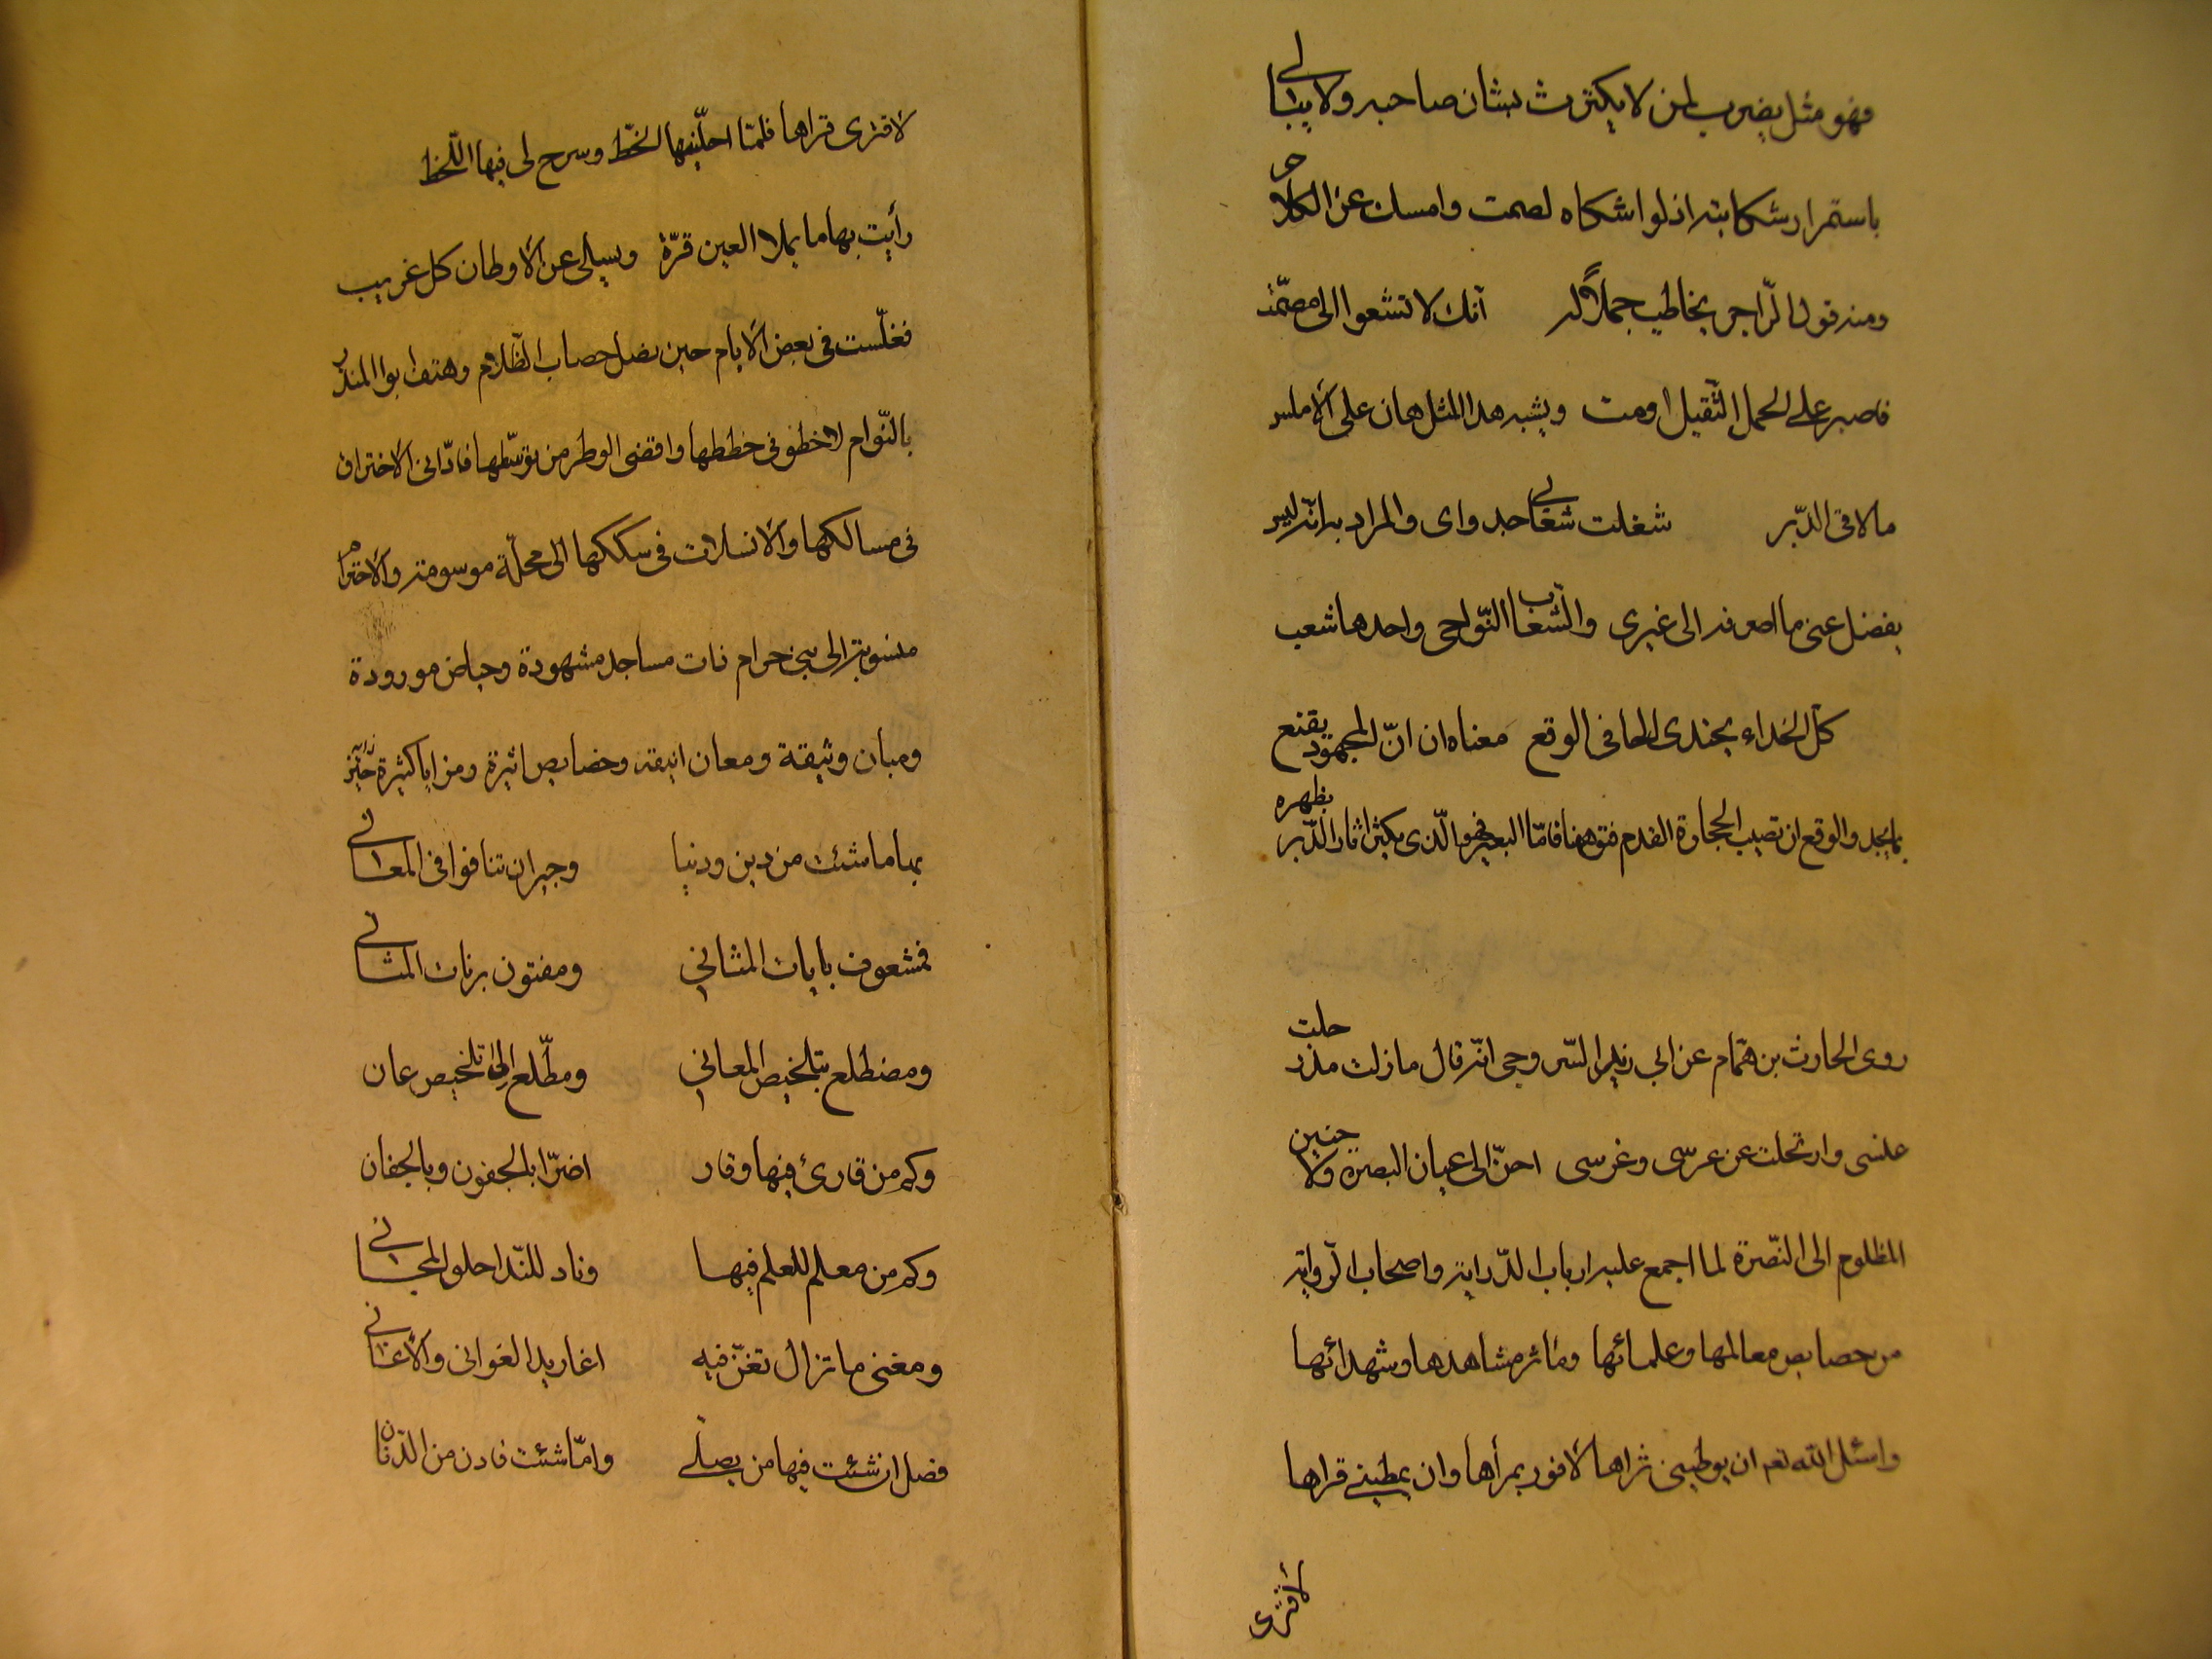 فهو مثل يضرب لمن لا يكترث بشان صاحبه ولا يبالى
باستمرار شكايته اذ لو اشكاه لصمت وامسك عن الكلام
ومنه قول الراجز يخاطب جملا له آنك لا تشعوا الى مصمّت
فاصبر على الحمل الثقيل او مت ويشبه هذا المثل هان على الاملس
ما لاقى الدّبر شغلت شعابى جدواى والمراد به انّه ليس
يفضل عنى ما اصرفه الى غيرى والشّعاب النّواحى واحدها شعب
كلّ الحذاء يحتذى الحافى الوقع معناه ان انّ المجهود يقنع
بما يجد والوقع ان تصيب الحجارة القدم فتوهنها فامّا البعير فهو الّذى يكثر اثار الدّبر بظهره
روى الحارث بن همّام عن ابى زيد السّروجى انّه قال ما زلت مذ رحلت
عنسى وارتحلت عن عرسى وغرسى احنّ الى عيان البصرة ولا حنين
المظلوم الى النّصرة لما اجمع عليه ارباب الدّراية واصحاب الرّواية
من خصايص معالمها وعلمائها وماثر مشاهدها وشهدائها
واسئل الله تعم ان يوطينى ثراها لافوز بمرأها وان يمطينى قراها
لاقترى
لاقترى قراها فلمّا احلّنيها الحظّ وسرح لى فيها اللّحظ
رأيت بها ما يملا العين قرّة ويسلى عن الاوطان كل غريب
فغلّست فى بعض الايام حين نصل خصاب الظّلام وهتف ابو المنذر
بالنّوام لاخطو فى خططها واقضى الوطر من توسّطها فادّانى الاختراق
فى مسالكها والانسلات فى سككها الى محلّة موسومة والاحترام
منسوبة الى بنى حرام ذات مساجد مشهودة وحياض مورودة
ومبان وثيقة ومعان انيقة وخصايص اثيرة ومزايا كثيرة
بها ما شئت من دين ودنيا وجيران تنافوا فى المعانى
فمشعوف بايات المثاني ومفتون برنات المثانى
ومضطلع بتلخيص المعاني ومطّلع الى تلخيص عان
وكم من قارئ فيها وقار اضرّا بالجفون وبالجفان
وكم من معلم للعلم فيها وناد للنّدا حلو المجانى
ومغنى ما تزال تغنّ فيه اغاريد الغوانى والاغانى
فصل ان شئت فيها من يصلّى وامّا شئت فادن من الدّنان